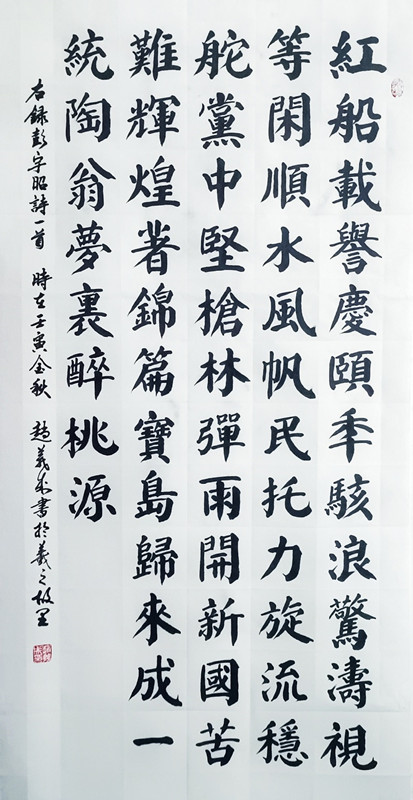 紅船載譽慶頤年駭浪驚濤視
等閑順水風帆民托力旋流穩
舵黨中堅槍林彈雨開新國苦
難輝煌著錦篇寶島歸來成一
統陶翁夢裏醉桃源
右録彭宇昭詩一首 時在壬寅金秋 趙義書於羲之故里